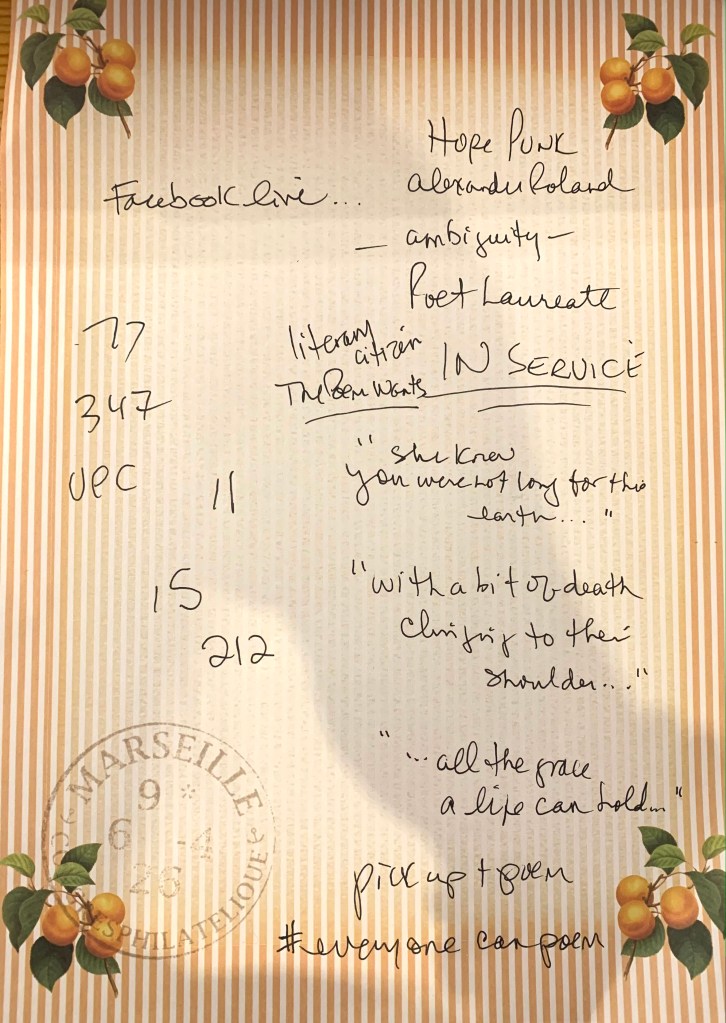 Hope Punk
Facebook live...
Alexandu Roland
— ambiguity —
Poet Laureate
77
literary
citizen
IN SERVICE
The Poem Wants
347
"she knew
you were not long for this
earth..."
UPC
11
"with a bit of death
clinging to their
shoulder..."
15
212
"...all the grace
a life can hold..."
pick up + poem
#everyone can poem
MARSEILLE
9 *
6 -4
26
PHILATELIQUE